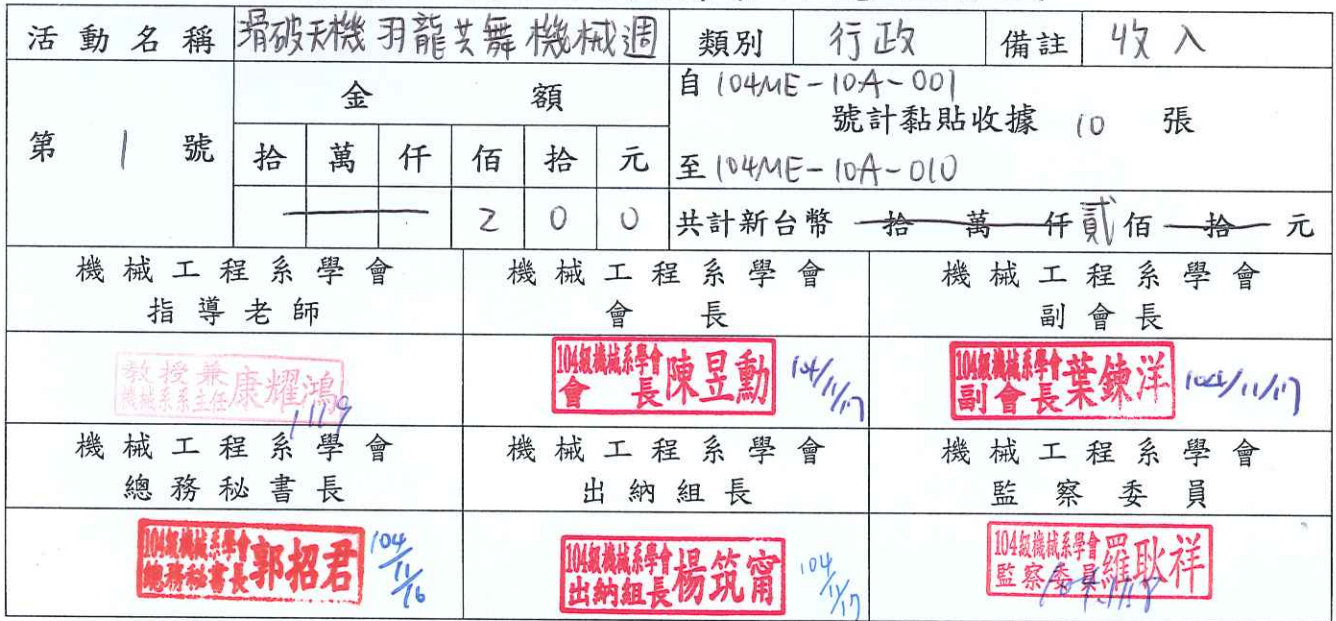 活動名稱 滑破天機 羽龍共舞 機械週 類別 行政 備註 收入
第 1 號
金額
拾 萬 仟 佰 拾 元
2 0 0
自 104ME-10A-001
號計黏貼收據 10 張
至 104ME-10A-010
共計新台幣 拾 萬 仟 貳 佰 拾 元
機械工程系學會 機械工程系學會 機械工程系學會
指導老師 會長 副會長
教授兼
機械系系主任 康耀鴻
11/19
104級機械系學會
會長 陳昱勳 104/11/17
104級機械系學會
副會長 葉鍊洋 104/11/17
機械工程系學會 機械工程系學會 機械工程系學會
總務秘書長 出納組長 監察委員
104級機械系學會
總務秘書長 郭招君 104/11/16
104級機械系學會
出納組長 楊筑甯 104/11/17
104級機械系學會
監察委員 羅耿祥